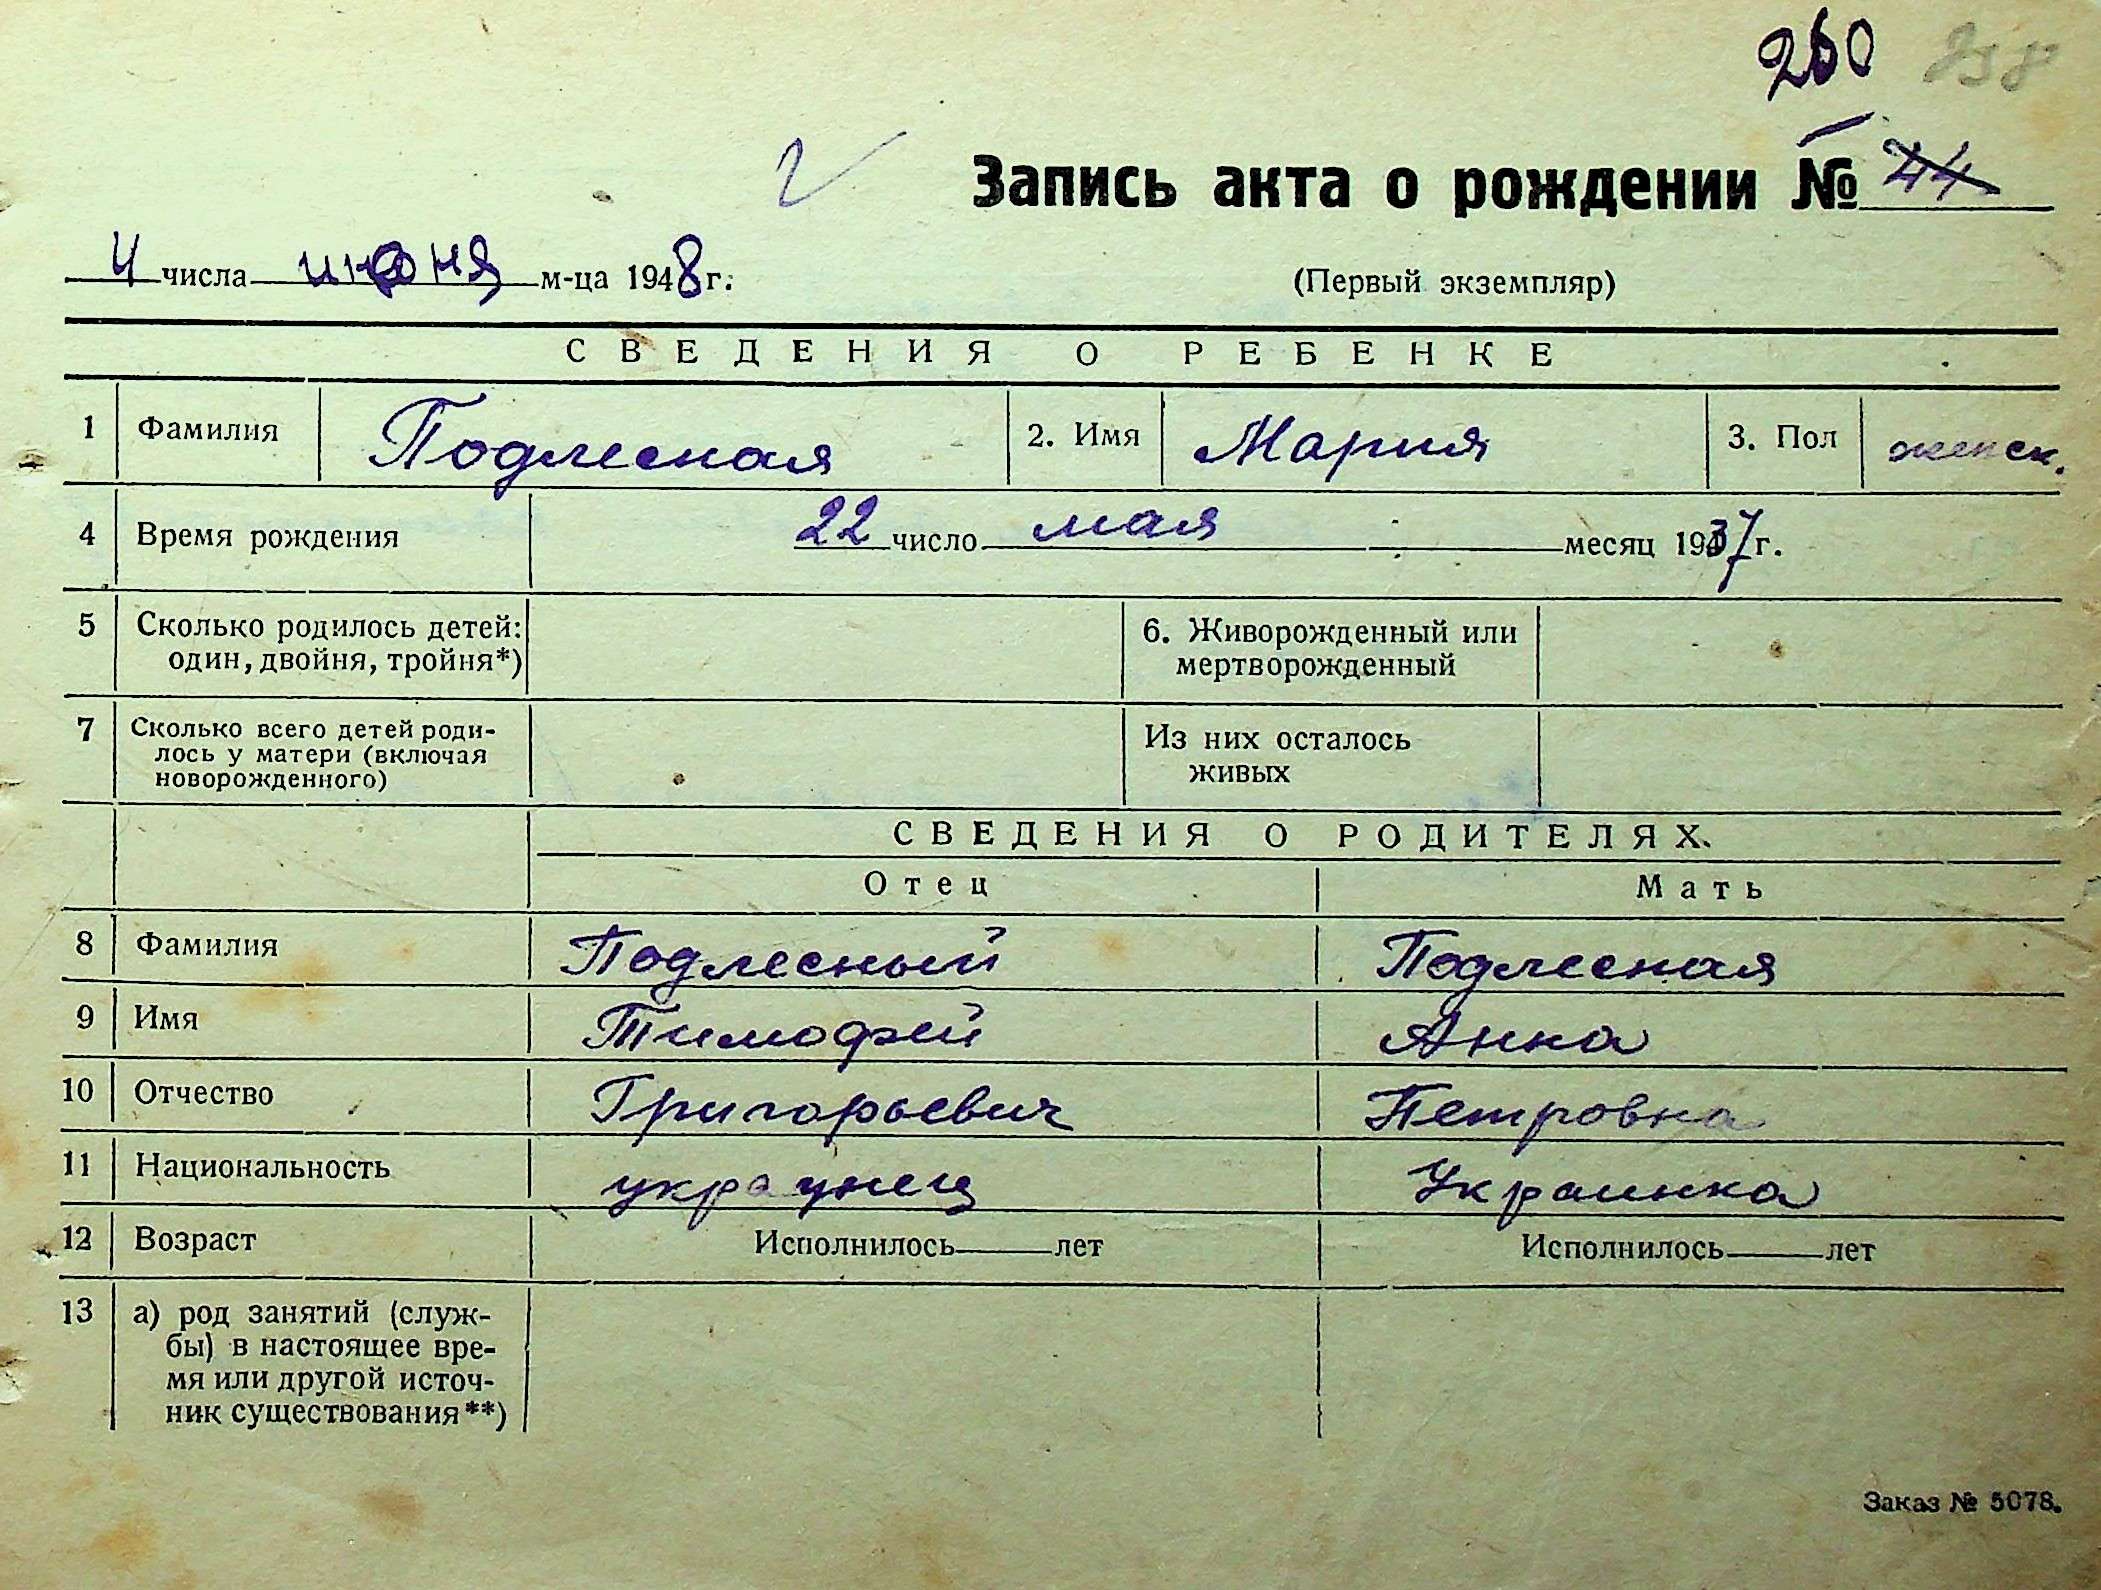 260 258
Запись акта о рождении № 44
4 числа июня м-ца 1948 г.
(Первый экземпляр)
СВЕДЕНИЯ О РЕБЕНКЕ
1 Фамилия Подлесная 2. Имя Мария 3. Пол женск.
4 Время рождения 22 число мая месяц 1937 г.
5 Сколько родилось детей: 6. Живорожденный или
один, двойня, тройня*) мертворожденный
7 Сколько всего детей роди- Из них осталось
лось у матери (включая живых
новорожденного)
СВЕДЕНИЯ О РОДИТЕЛЯХ.
Отец Мать
8 Фамилия Подлесный Подлесная
9 Имя Тимофей Анна
10 Отчество Григорьевич Петровна
11 Национальность украинец Украинка
12 Возраст Исполнилось лет Исполнилось лет
13 а) род занятий (служ-
бы) в настоящее вре-
мя или другой источ-
ник существования**)
Заказ № 5078.